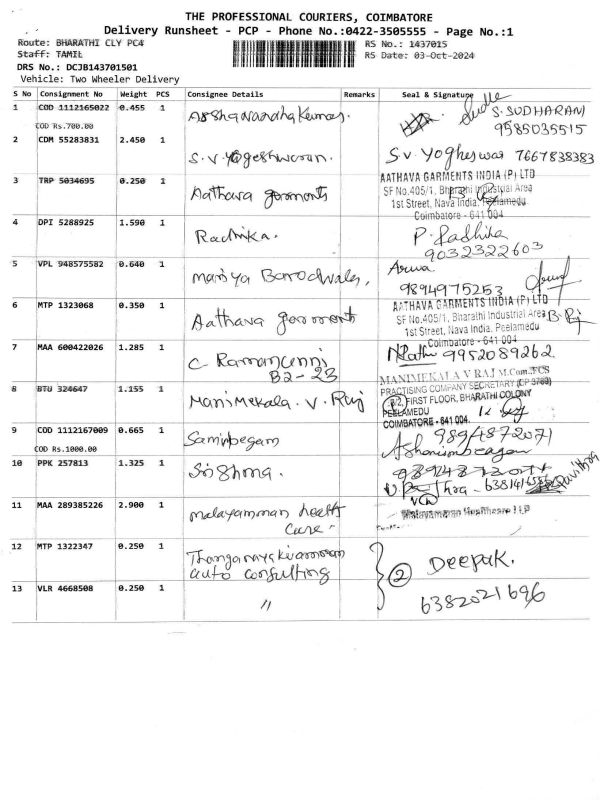 THE PROFESSIONAL COURIERS, COIMBATORE
Delivery Runsheet - PCP - Phone No.:0422-3505555 - Page No.:1
Route: BHARATHI CLY PC4
RS No.: 1437015
Staff: TAMIL
RS Date: 03-Oct-2024
DRS No.: DCJB143701501
Vehicle: Two Wheeler Delivery
S No Consignment No Weight PCS Consignee Details Remarks Seal & Signature
1 COD 1112165022 0.455 1
S. SUDHARANI
COD Rs.700.00
9585035515
2 CDM 55283831 2.450 1 S.V. Yogeshwaran. S.V. Yogheswar 7667838383
3 TRP 5034695 0.250 1 Aathava garments
AATHAVA GARMENTS INDIA (P) LTD
SF No.405/1, Bharathi Industrial Area
1st Street, Nava India, Peelamedu
Coimbatore - 641 004
4 DPI 5288925 1.590 1 Radhika. P. Radhika
9032322603
5 VPL 948575582 0.640 1
9894975253
6 MTP 1323068 0.350 1 Aathava garments
AATHAVA GARMENTS INDIA (P) LTD
SF No.405/1, Bharathi Industrial Area
1st Street, Nava India, Peelamedu
Coimbatore - 641 004
7 MAA 600422026 1.285 1 C. Ramanunni 9952089262
B2-23
8 BTU 324647 1.155 1 Manimekala. V. Raj
MANIMEKALA V RAJ M.Com.,FCS
PRACTISING COMPANY SECRETARY
FIRST FLOOR, BHARATHI COLONY
PEELAMEDU
COIMBATORE - 641 004.
9 COD 1112167009 0.665 1 9894872071
COD Rs.1000.00
10 PPK 257813 1.325 1
11 MAA 289385226 2.900 1 malayamman health
care
Malayamman Healthcare LLP
12 MTP 1322347 0.250 1
auto consulting
2 Deepak.
13 VLR 4668508 0.250 1 "
6382021696